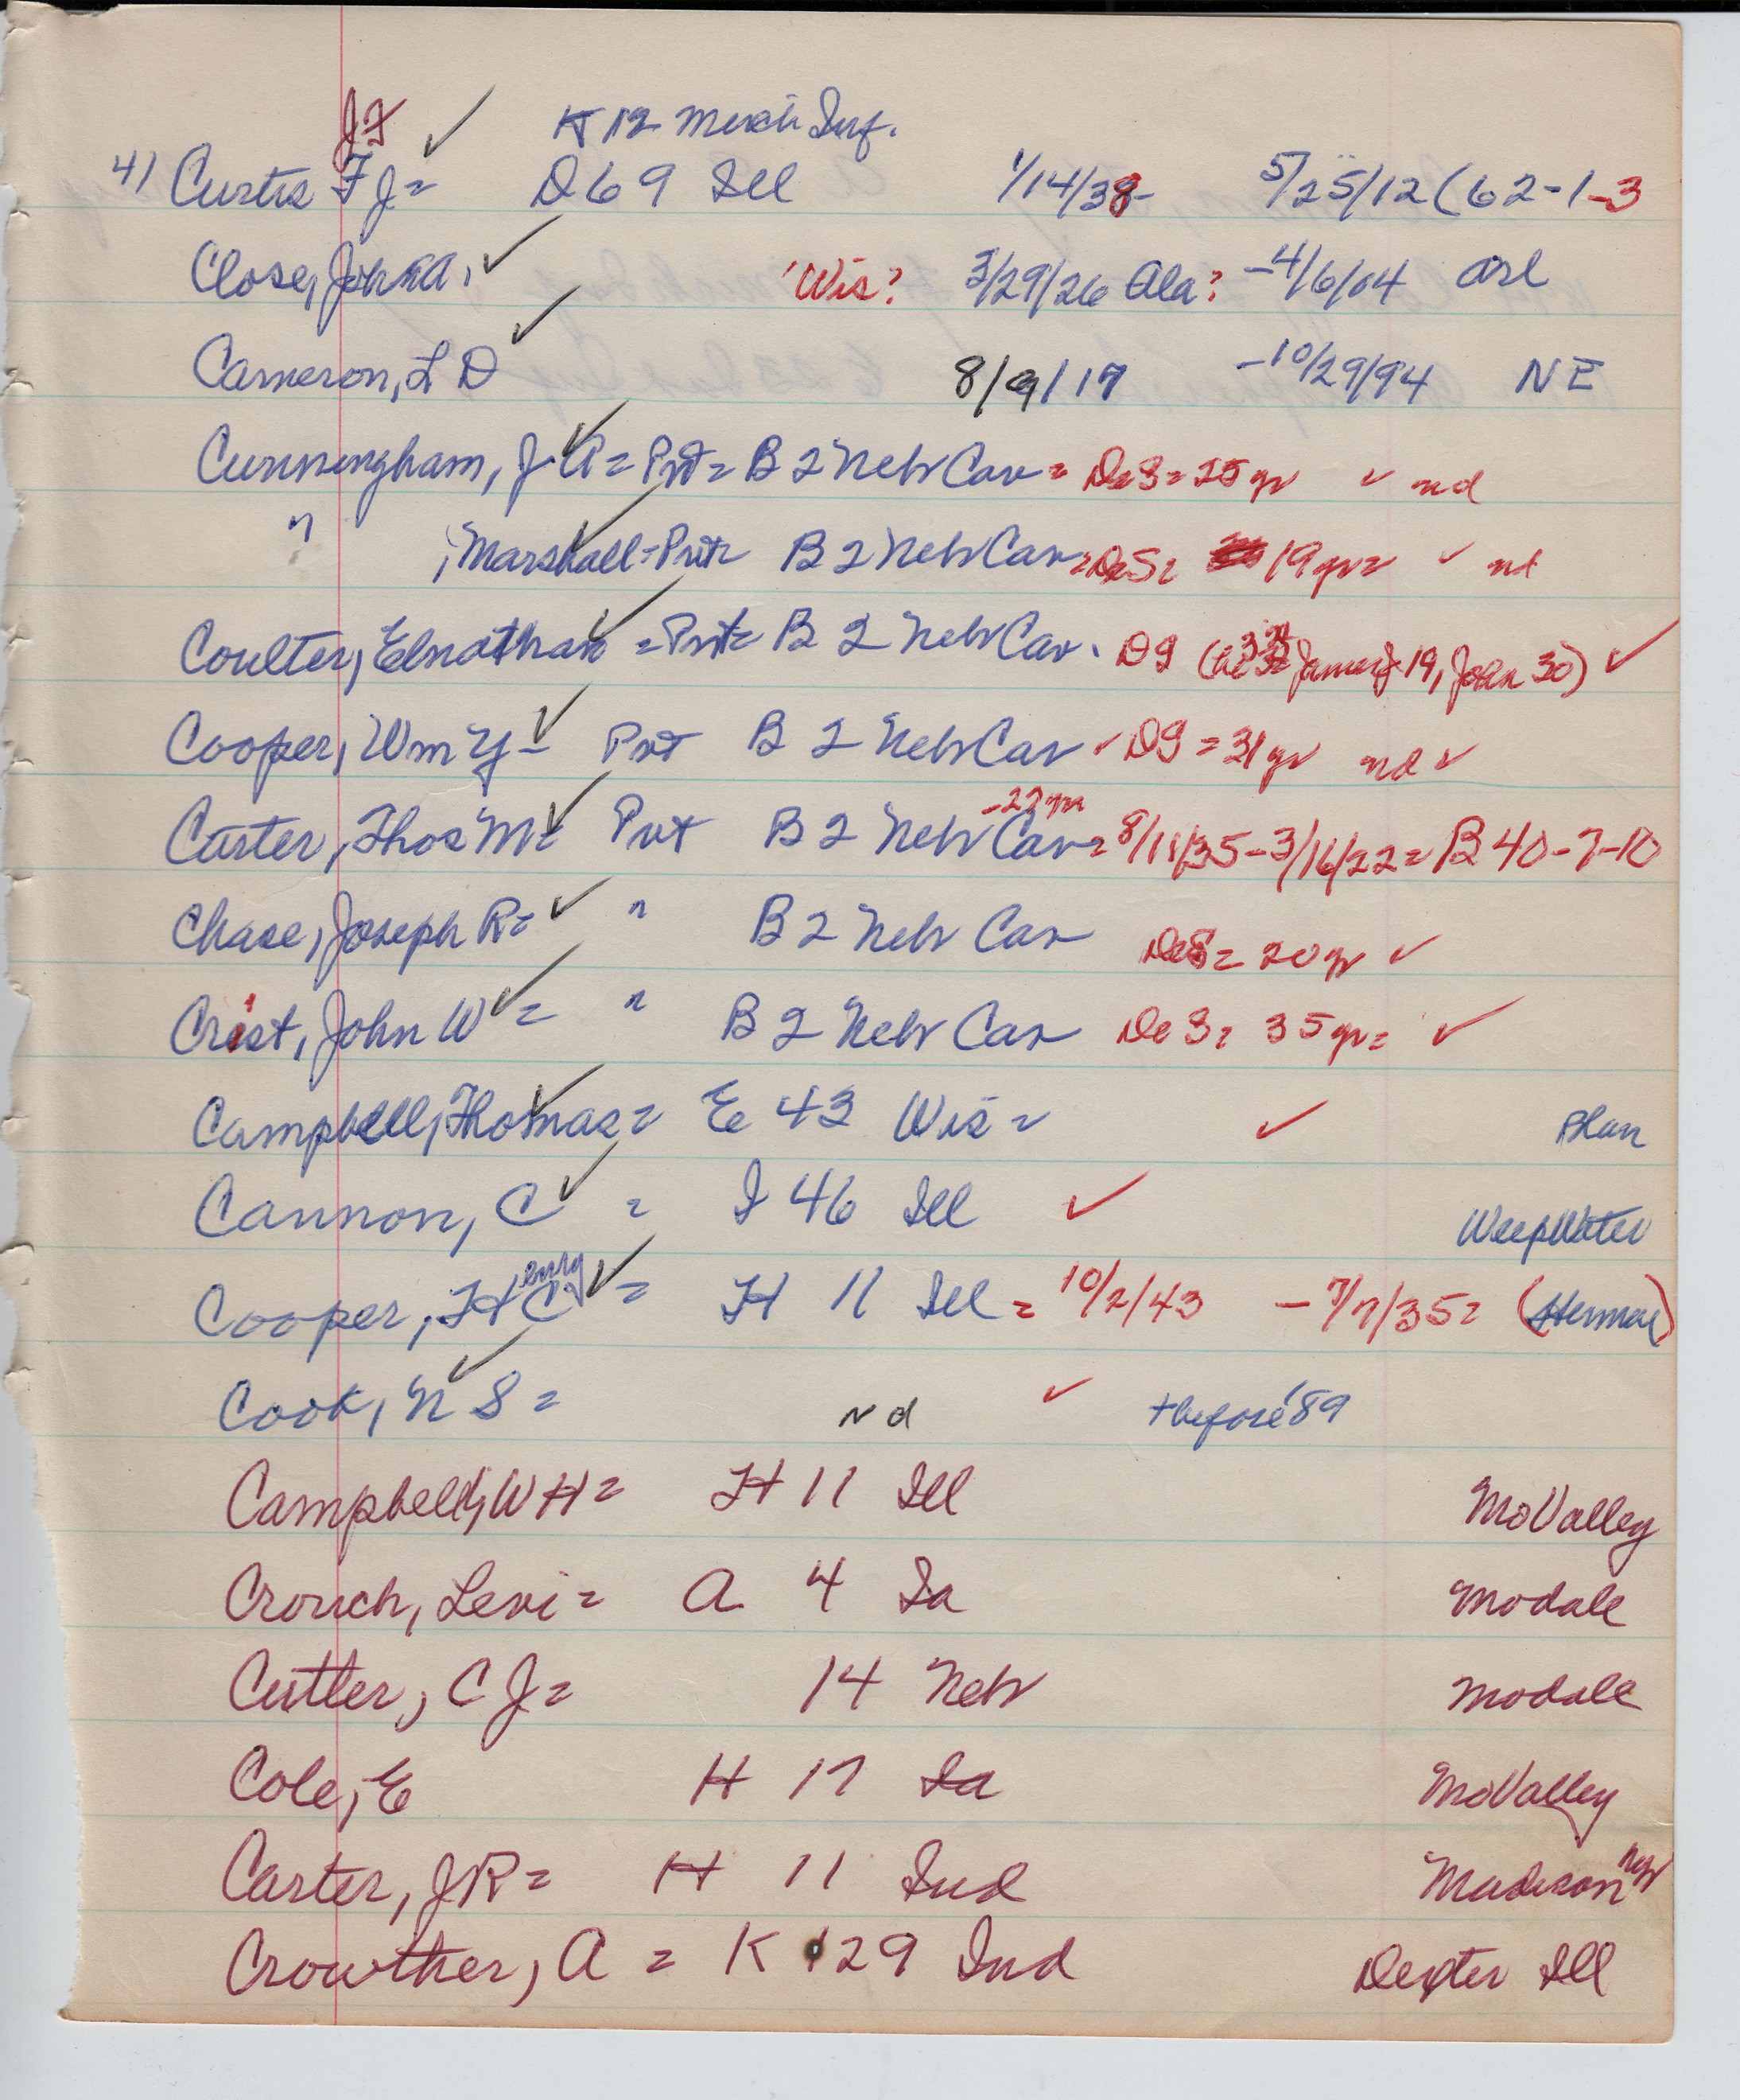 JF ✓ K 12 Mich Inf.
41 Curtis F J = D 69 Ill 1/14/38- 5/25/12 (62-1-3
Close, John A, ✓ Wis? 3/29/26 Ala? -4/6/04 Arl
Cameron, L D ✓ 8/9/17 -10/29/94 NE
Cunningham, J A = Pvt = B 2 Nebr Cav = DeS = 25 yr ✓ nd
" , Marshall = Pvt = B 2 Nebr Cav = DeS = 19 yr = ✓ nd
Coulter, Elnathan = Pvt = B 2 Nebr Cav. D9 ( James J 19, John 30) ✓
Cooper, Wm Y = Pvt B 2 Nebr Cav ✓ D9 = 31 yr nd ✓
-27 yr
Carter, Thos M = Pvt B 2 Nebr Cav = 8/11/35-3/16/22 = B 40-7-10
Chase, Joseph R = ✓ " B 2 Nebr Cav DeS = 20 yr ✓
Crist, John W ✓ = " B 2 Nebr Cav DeS = 35 yr = ✓
Campbell, Thomas = E 43 Wis = ✓ Blair
Cannon, C ✓ = I 46 Ill ✓ WeepWater
enry
Cooper, H C ✓ = H 11 Ill = 10/2/43 -7/7/35 = (Herman)
Cook, N S = ✓ nd ✓ +before '89
Campbell, W H = H 11 Ill MoValley
Crouch, Levi = A 4 Ia Modale
Cutler, C J = 14 Nebr Modale
Cole, E H 17 Ia MoValley
Carter, J R = H 11 Ind Madison Nebr
Crowther, A = K 129 Ind Dexter Ill